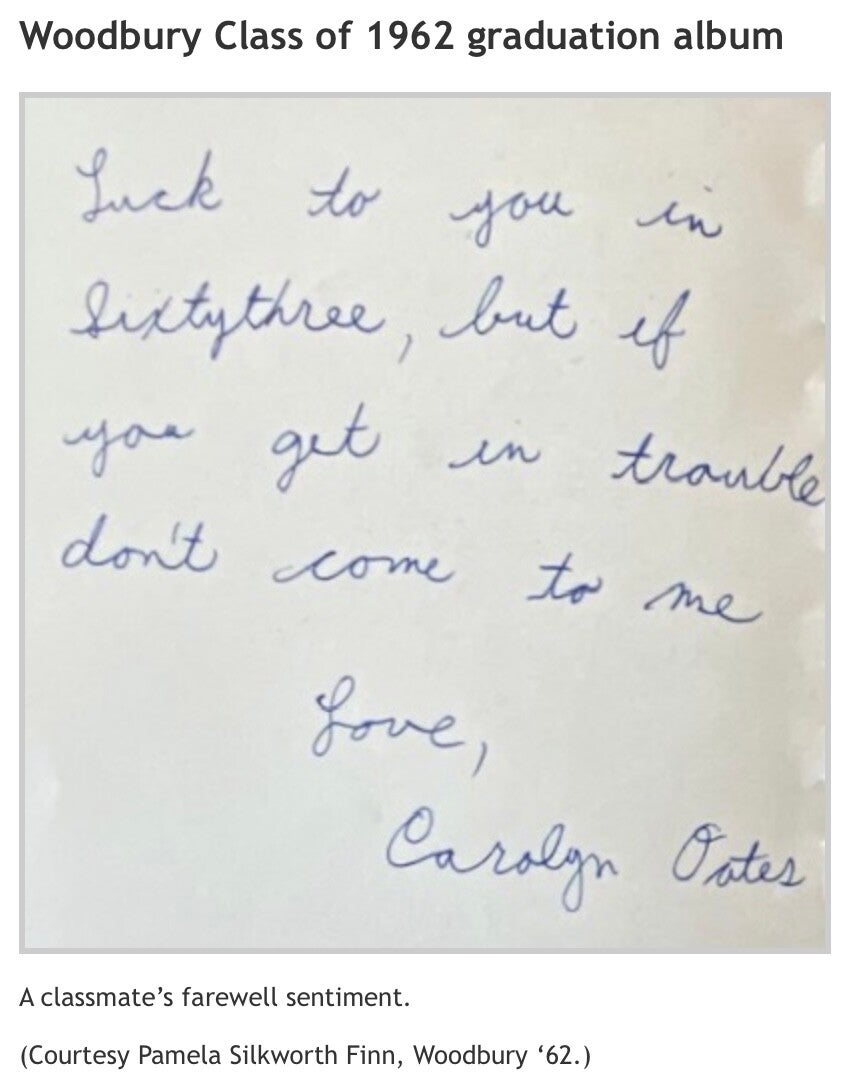 Woodbury Class of 1962 graduation album
Luck to you in
Sixtythree, but if
you get in trouble
don't come to me
Love,
Carolyn Oates
A classmate’s farewell sentiment.
(Courtesy Pamela Silkworth Finn, Woodbury ‘62.)